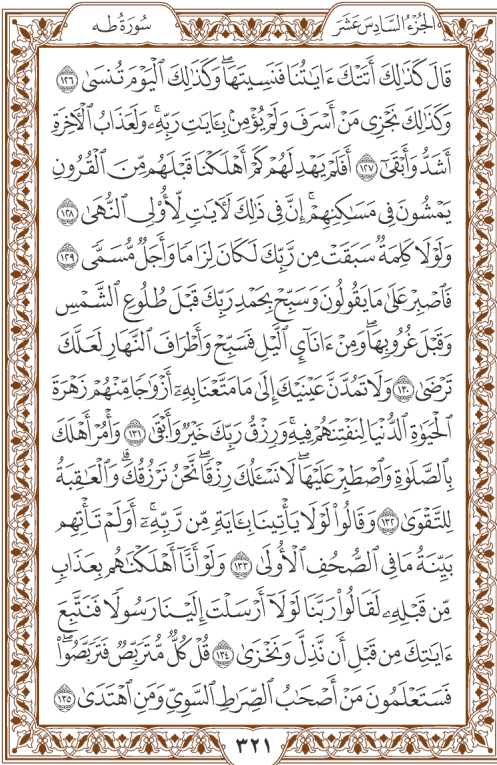 الجُزْءُ السَّادِسَ عَشَرَ
سُورَةُ طه
قَالَ كَذَٰلِكَ أَتَتْكَ ءَايَٰتُنَا فَنَسِيتَهَاۖ وَكَذَٰلِكَ ٱلْيَوْمَ تُنسَىٰ ١٢٦
وَكَذَٰلِكَ نَجْزِى مَنْ أَسْرَفَ وَلَمْ يُؤْمِنۢ بِـَٔايَٰتِ رَبِّهِۦۚ وَلَعَذَابُ ٱلْءَاخِرَةِ
أَشَدُّ وَأَبْقَىٰٓ ١٢٧ أَفَلَمْ يَهْدِ لَهُمْ كَمْ أَهْلَكْنَا قَبْلَهُم مِّنَ ٱلْقُرُونِ
يَمْشُونَ فِى مَسَٰكِنِهِمْۗ إِنَّ فِى ذَٰلِكَ لَـَٔايَٰتٍ لِّأُو۟لِى ٱلنُّهَىٰ ١٢٨
وَلَوْلَا كَلِمَةٌ سَبَقَتْ مِن رَّبِّكَ لَكَانَ لِزَامًا وَأَجَلٌ مُّسَمًّى ١٢٩
فَٱصْبِرْ عَلَىٰ مَا يَقُولُونَ وَسَبِّحْ بِحَمْدِ رَبِّكَ قَبْلَ طُلُوعِ ٱلشَّمْسِ
وَقَبْلَ غُرُوبِهَاۖ وَمِنْ ءَانَآئِ ٱلَّيْلِ فَسَبِّحْ وَأَطْرَافَ ٱلنَّهَارِ لَعَلَّكَ
تَرْضَىٰ ١٣٠ وَلَا تَمُدَّنَّ عَيْنَيْكَ إِلَىٰ مَا مَتَّعْنَا بِهِۦٓ أَزْوَٰجًا مِّنْهُمْ زَهْرَةَ
ٱلْحَيَوٰةِ ٱلدُّنْيَا لِنَفْتِنَهُمْ فِيهِۚ وَرِزْقُ رَبِّكَ خَيْرٌ وَأَبْقَىٰ ١٣١ وَأْمُرْ أَهْلَكَ
بِٱلصَّلَوٰةِ وَٱصْطَبِرْ عَلَيْهَاۖ لَا نَسْـَٔلُكَ رِزْقًاۖ نَّحْنُ نَرْزُقُكَۗ وَٱلْعَٰقِبَةُ
لِلتَّقْوَىٰ ١٣٢ وَقَالُوا۟ لَوْلَا يَأْتِينَا بِـَٔايَةٍ مِّن رَّبِّهِۦٓۚ أَوَلَمْ تَأْتِهِم
بَيِّنَةُ مَا فِى ٱلصُّحُفِ ٱلْأُولَىٰ ١٣٣ وَلَوْ أَنَّآ أَهْلَكْنَٰهُم بِعَذَابٍ
مِّن قَبْلِهِۦ لَقَالُوا۟ رَبَّنَا لَوْلَآ أَرْسَلْتَ إِلَيْنَا رَسُولًا فَنَتَّبِعَ
ءَايَٰتِكَ مِن قَبْلِ أَن نَّذِلَّ وَنَخْزَىٰ ١٣٤ قُلْ كُلٌّ مُّتَرَبِّصٌ فَتَرَبَّصُوا۟ۖ
فَسَتَعْلَمُونَ مَنْ أَصْحَٰبُ ٱلصِّرَٰطِ ٱلسَّوِىِّ وَمَنِ ٱهْتَدَىٰ ١٣٥
٣٢١